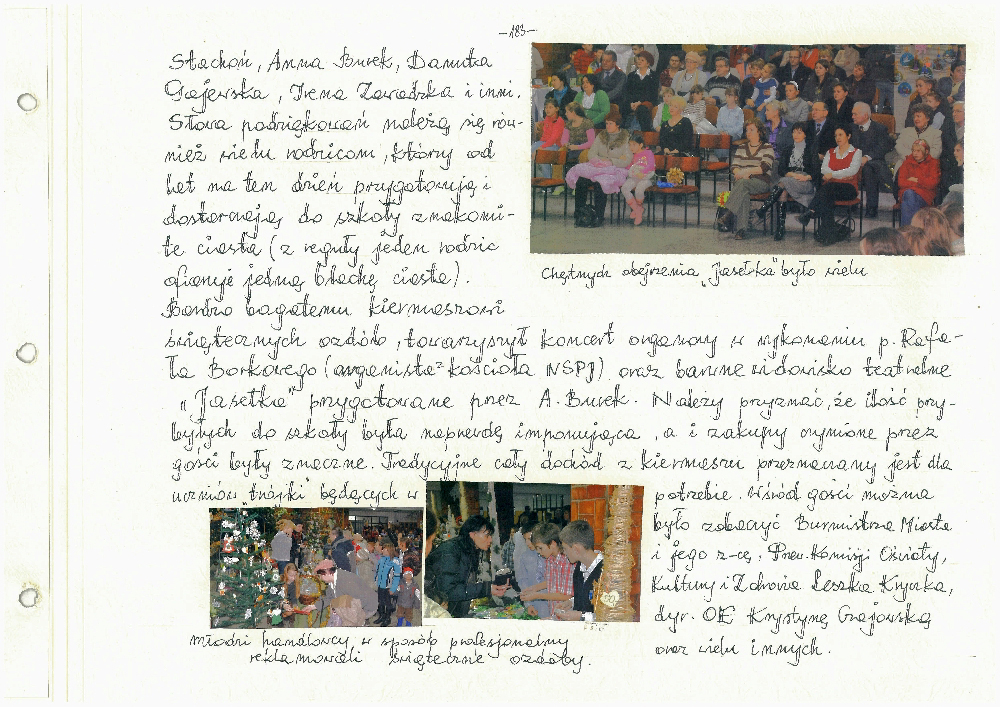 -183-
Stachoń, Anna Burek, Danuta
Gajewska, Irena Zawadzka i inni.
Słowa podziękowań należą się rów-
nież wielu rodzicom, którzy od
lat na ten dzień przygotowują i
dostarczają do szkoły znakomi-
te ciasta (z reguły jeden rodzic
ofiaruje jedną blachę ciasta).
Bardzo bogatemu kiermaszowi
świątecznych ozdób, towarzyszył koncert organowy w wykonaniu p. Rafa-
ła Borkowego (organista kościoła NSPJ) oraz barwne widowisko teatralne
"Jasełka" przygotowane przez A. Burek. Należy przyznać, że ilość przy-
byłych do szkoły była naprawdę imponująca, a i zakupy czynione przez
gości były znaczne. Tradycyjne cały dochód z kiermaszu przeznaczany jest dla
uczniów "trójki" będących w
potrzebie. Wśród gości można
było zobaczyć Burmistrza Miasta
i jego z-cę, Przew. Komisji Oświaty,
Kultury i Zdrowia Leszka Kryczka,
dyr. OE Krystynę Grajowską
oraz wielu innych.
Chętnych obejrzenia "Jasełka" było wielu
Młodzi handlowcy w sposób profesjonalny
reklamowali świąteczne ozdoby.